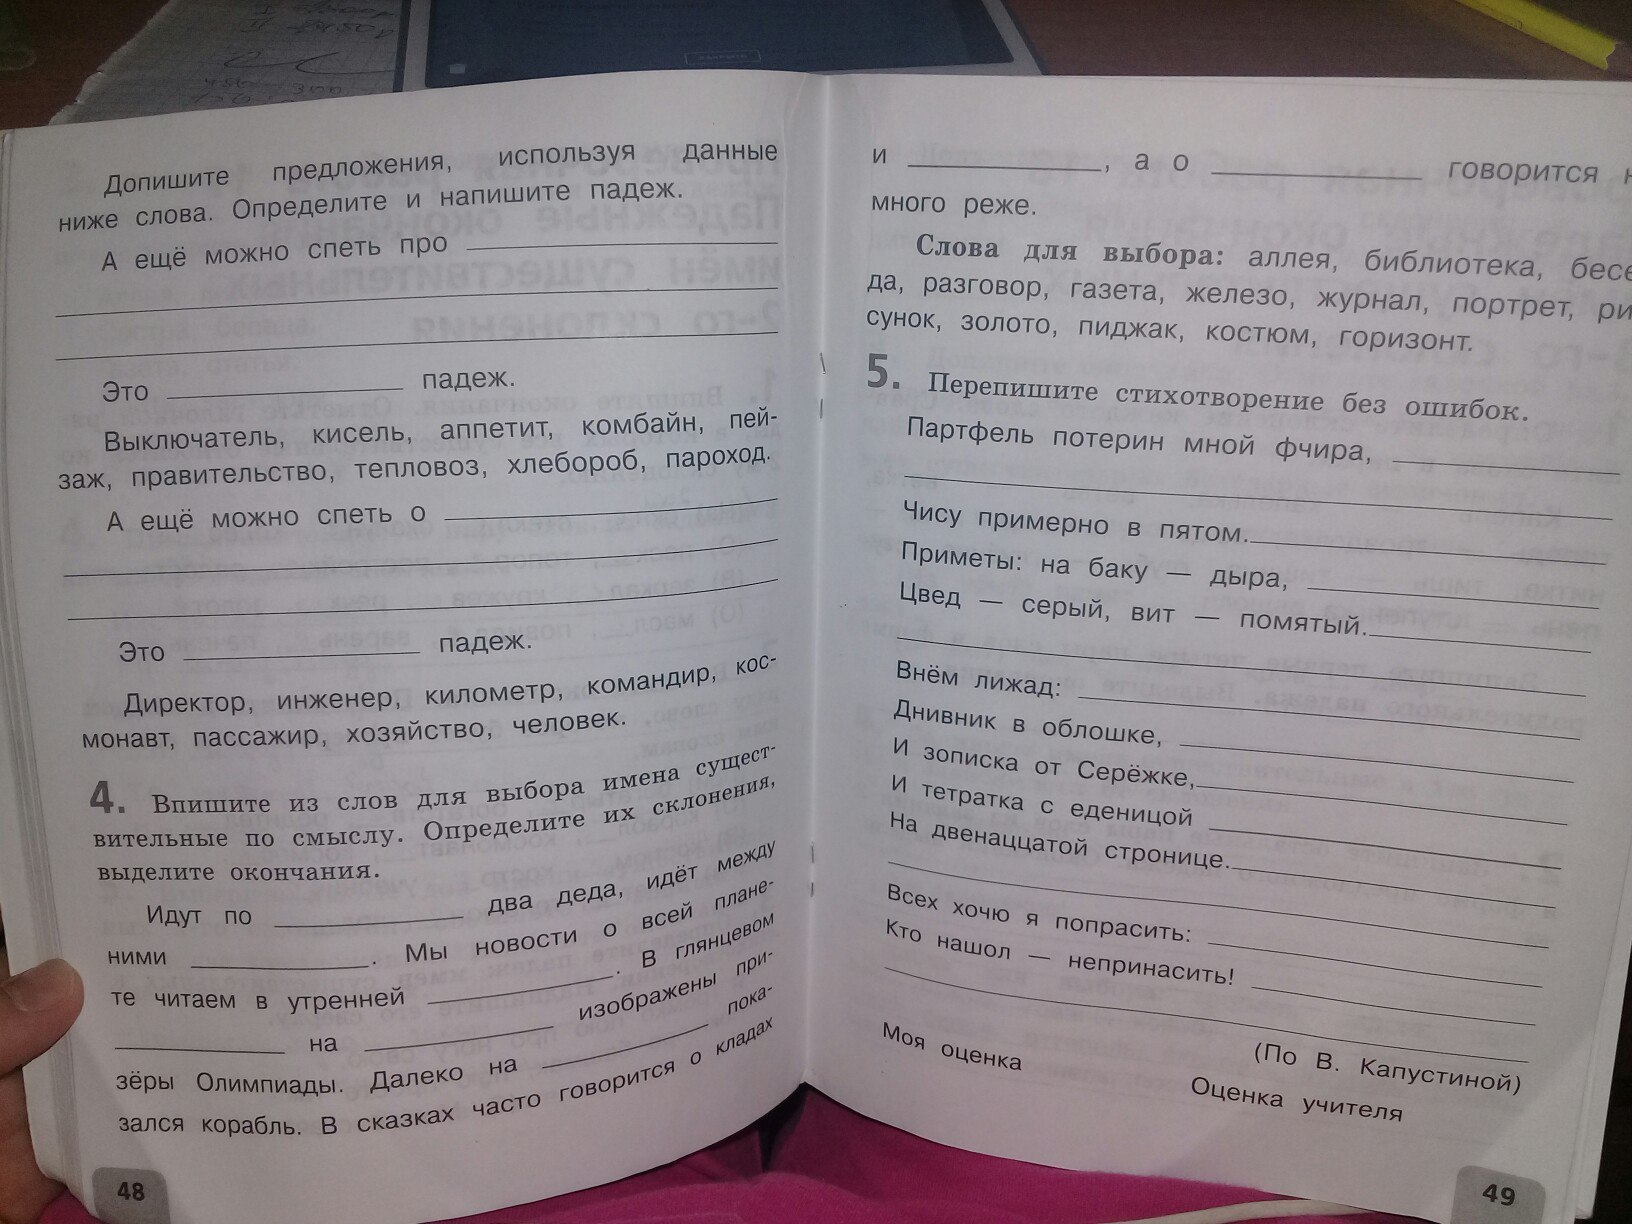 Допишите предложения, используя данные
ниже слова. Определите и напишите падеж.
А ещё можно спеть про
Это падеж.
Выключатель, кисель, аппетит, комбайн, пей-
заж, правительство, тепловоз, хлебороб, пароход.
А ещё можно спеть о
Это падеж.
Директор, инженер, километр, командир, кос-
монавт, пассажир, хозяйство, человек.
4. Впишите из слов для выбора имена сущест-
вительные по смыслу. Определите их склонения,
выделите окончания.
Идут по два деда, идёт между
ними . Мы новости о всей плане-
те читаем в утренней . В глянцевом
на изображены при-
зёры Олимпиады. Далеко на пока-
зался корабль. В сказках часто говорится о кладах
48
и , а о говорится н
много реже.
Слова для выбора: аллея, библиотека, бесе
да, разговор, газета, железо, журнал, портрет, ри
сунок, золото, пиджак, костюм, горизонт.
5. Перепишите стихотворение без ошибок.
Партфель потерин мной фчира,
Чису примерно в пятом.
Приметы: на баку — дыра,
Цвед — серый, вит — помятый.
Внём лижад:
Днивник в облошке,
И зописка от Серёжке,
И тетратка с еденицой
На двенаццатой стронице.
Всех хочю я попрасить:
Кто нашол — непринасить!
(По В. Капустиной)
Моя оценка
Оценка учителя
49